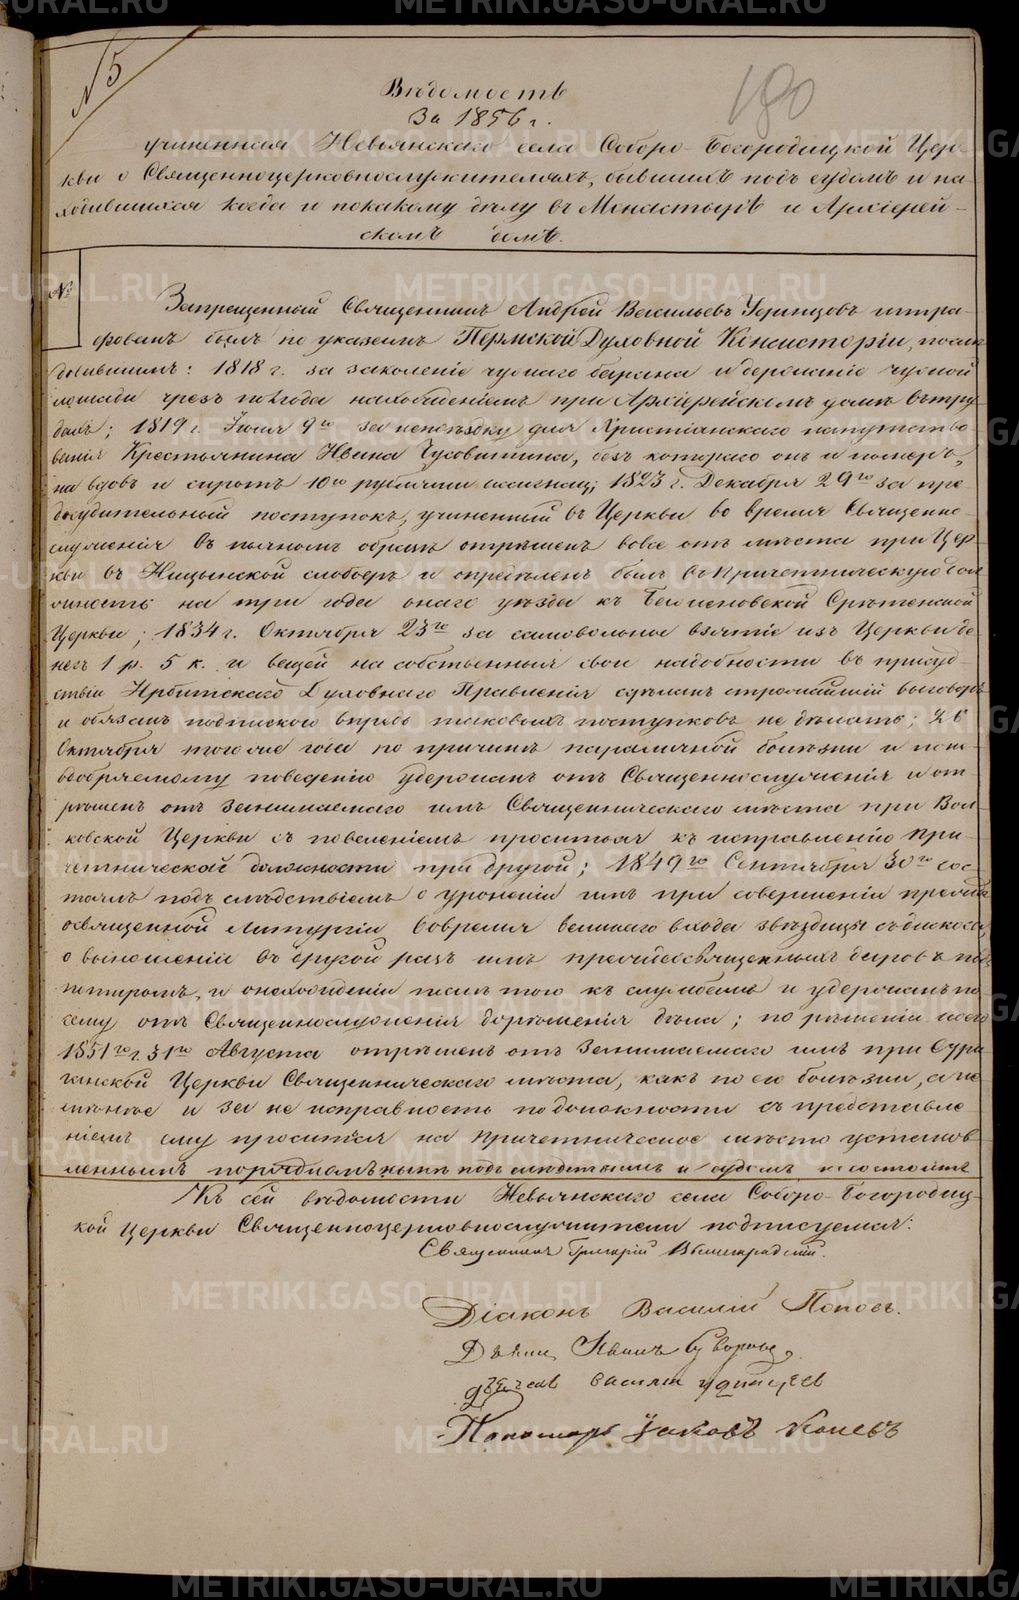 N 5
190
Вѣдомость
За 1856 г.
учиненная Невьянскаго села Соборо-Богородицкой Цер
кви о Священноцерковнослужителяхъ, бывшихъ подъ судомъ и на
ходившихся когда и по какому дѣлу въ Монастырѣ и Архіерей-
скомъ домѣ.
№
Запрещенный Священникъ Андрей Васильевъ Удинцовъ штра-
фованъ былъ по указамъ Пермской Духовной Консисторіи, послѣ
довавшимъ: 1818 г. за заколеніе чужаго барана и держаніе чужой
лошади чрезъ полгода нахожденіемъ при Архіерейскомъ домѣ въ тру
дахъ; 1819 г. Іюля 9го за непоѣздку для Христіанскаго напутство
ванія Крестьянина Ивана Чусовитина, безъ котораго онъ и померъ,
на вдовъ и сиротъ 10ю рублями ассигнац; 1823 г. Декабря 29го за пре
досудительный поступокъ, учиненный въ Церкви во время Священно-
служенія въ пьяномъ образѣ отрѣшенъ вовсе отъ мѣста при Цер
кви въ Ницынской слободѣ и опредѣленъ былъ въ Причетническую дол
жность на три года онаго уѣзда къ Срѣтенской
Церкви; 1834 г. Октября 23го за самовольное взятіе изъ Церкви де-
негъ 1 р. 5 к. и вещей на собственныя свои надобности въ присуд-
ствіи Ирбитскаго Духовнаго Правленія сдѣланъ строжайшій выговоръ
и обязанъ подпискою впредь таковыхъ поступковъ не дѣлать; 26
Октября того же года по причинѣ параличной болѣзни и неш-
доодобряемому поведенію удержанъ отъ Священнослуженія и от-
рѣшенъ отъ занимаемаго имъ Священническаго мѣста при Вол-
ковской Церкви съ повеленіемъ проситься къ исправленію при-
четнической должности при другой; 1849го Сентября 30го сос
тоялъ подъ слѣдствіемъ о уроненіи имъ при совершеніи преждe
освященной Литургіи вовремя великаго входа звѣздицы съ дискоса,
о выношеніи въ другой разъ имъ преждеосвященныхъ даровъ подъ
потиромъ, и о нехожденіи послѣ того къ службамъ и удержанъ по
сему отъ Священнослуженія до рѣшенія дѣла; по рѣшенію коего
1851го г. 31го Августа отрѣшенъ отъ занимаемаго имъ при
Церкви Священническаго мѣста, какъ по его болѣзни, а не
менѣе и за не исправность по должности съ представле-
ніемъ ему проситься на Причетническое мѣсто установ-
леннымъ порядкомъ, нынѣ подъ слѣдствіемъ и судомъ не состоитъ
Къ сей вѣдомости Невьянскаго села Соборо-Богородиц-
кой Церкви Священноцерковнослужители подписуемся:
Священникъ Григорій Вышеградскій.
Діаконъ Василій Поповъ.
Дьячекъ Иванъ Суворовъ
Дьячекъ Василій Удинцев
Пономарь Іаковъ Коневъ
METRIKI.GASO-URAL.RU